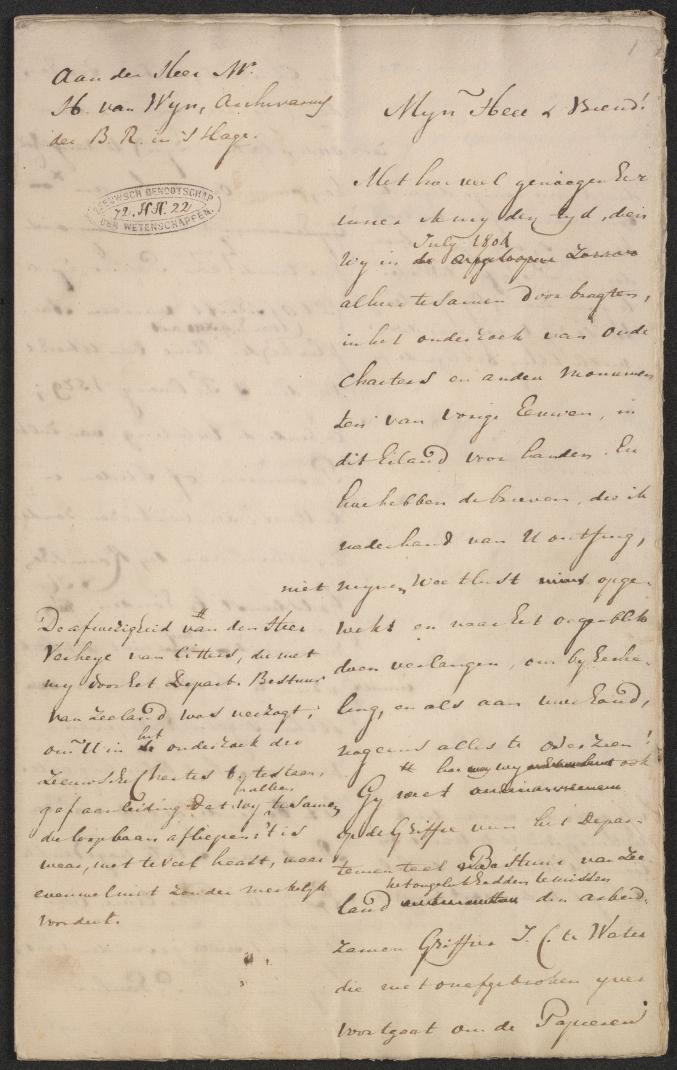 1
Aan den Heer Mr.
H. van Wyn, Archivarius
der B. R. in 's Hage.
ZEEUWSCH GENOOTSCHAP
72. HH. 22
DER WETENSCHAPPEN.
Myn Heer & Vriend!
Met hoe veel genoegen her
inner ik my den tyd, dien
July 1801
wy in de afgeloopen Zomer
alhier te samen doorbragten,
in het onderzoek van oude
Charters en andere Monumen
ten van vorige Eeuwen, in
dit Eiland voor handen. En
hoe hebben de brieven, die ik
naderhand van U ontfing,
niet mynen weetlust opge-
wekt en naar het oogenblik
doen verlangen, om by herha-
ling, en als aan uwe hand,
nogeens alles te overzien!
# hoe wy ook
Gy weet
op de Griffie van het Depar-
tementeel Bestuur van Zee-
het ongeluk hadden te missen
land den arbeid-
zamen Griffier J. C. te Water
die met onafgebroken yver
voortgaat om de Papieren
#
De afwezigheid van den Heer
Verheye van Citters, die met
my door het Depart. Bestuur
van Zeeland was verzogt,
het
om U in de onderzoek der
Zeeuwsche Charters by te staan,
gaf aanleiding dat wy te samen
de loopbaan afliepen; 't is
waar, met te veel haast, maar
evenwel niet zonder merkelyk
voordeel.